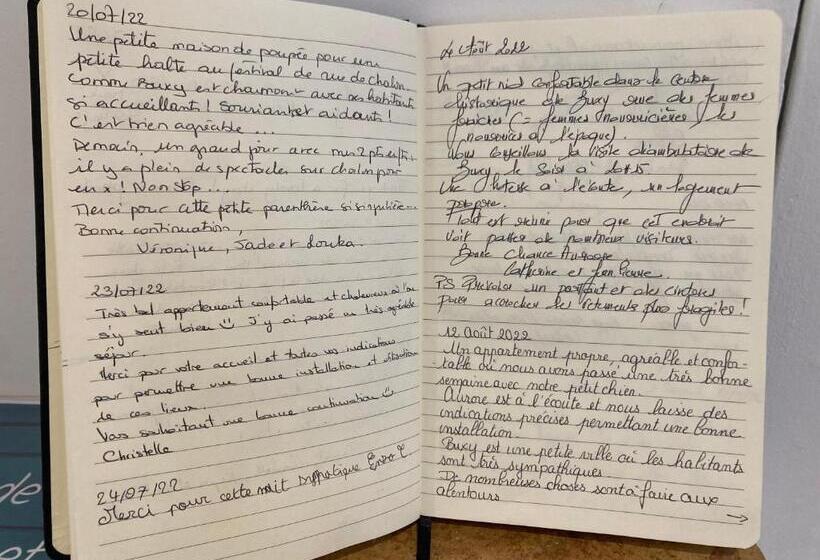 20/07/22
Une petite maison de poupée pour une
petite halte au festival de rue de chalon.
Comme Buxy est charmant avec ses habitants
si accueillants ! souriants et aidants !
C'est bien agréable ...
Demain, un grand jour avec mes 2 ptes
il y a plein de spectacles sur chalon pour
eux ! Non stop ...
Merci pour cette petite parenthèse si singulière ...
Bonne continuation,
Véronique, Jade et Louka.
23/07/22
Très bel appartement confortable et chaleureux où l'on
s'y sent bien J'y ai passé un très agréable
séjour.
Merci pour votre accueil et toutes vos indications
pour permettre une bonne installation et
de ces lieux.
Vous souhaitant une bonne continuation
Christelle
24/07/22
Merci pour cette nuit sympatique Enzo
4 Août 2022
Un petit nid confortable dans le centre
historique de Buxy rue des femmes
fraiches (= femmes nourricières / les
nourrices à l'époque).
Vous conseillons la visite déambulatoire de
Buxy le soir à
Une hôtesse à l'écoute, un logement
propre.
Tout est réuni pour que cet endroit
voit passer de nombreux visiteurs.
Bonne chance Aurore
Catherine et Jean Pierre.
PS Prévoir un et des cintres
pour accrocher les vêtements plus fragiles !
12 Août 2022
Un appartement propre, agréable et confor-
table où nous avons passé une très bonne
semaine avec notre petit chien.
Aurore est à l'écoute et nous laisse des
indications précises permettant une bonne
installation.
Buxy est une petite ville où les habitants
sont très sympathiques
De nombreuses choses sont à faire aux
alentours
de
et